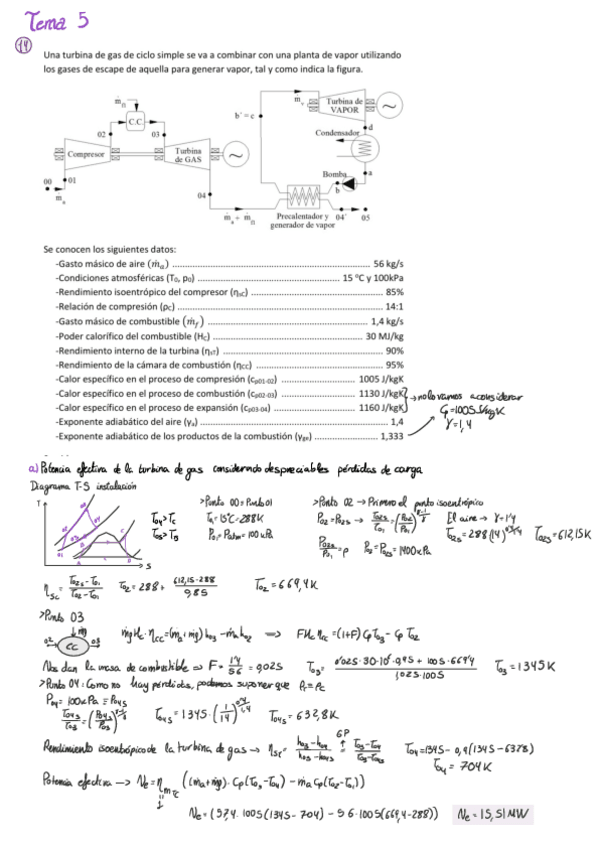 Tema 5
14
Una turbina de gas de ciclo simple se va a combinar con una planta de vapor utilizando
los gases de escape de aquella para generar vapor, tal y como indica la figura.
ṁf
C.C.
02
03
Compresor
Turbina
de GAS
00
01
ṁa
04
ṁa + ṁf
b´ = c
ṁv
Turbina de
VAPOR
Condensador
d
Bomba
a
b
Precalentador y
generador de vapor
04´
05
Se conocen los siguientes datos:
-Gasto másico de aire (ṁa) ........ 56 kg/s
-Condiciones atmosféricas (T0, p0) ........ 15 ºC y 100kPa
-Rendimiento isoentrópico del compresor (ηsc) ........ 85%
-Relación de compresión (ρC) ........ 14:1
-Gasto másico de combustible (ṁf) ........ 1,4 kg/s
-Poder calorífico del combustible (Hc) ........ 30 MJ/kg
-Rendimiento interno de la turbina (ηsT) ........ 90%
-Rendimiento de la cámara de combustión (ηCC) ........ 95%
-Calor específico en el proceso de compresión (cp01-02) ........ 1005 J/kgK
-Calor específico en el proceso de combustión (cp02-03) ........ 1130 J/kgK
-Calor específico en el proceso de expansión (cp03-04) ........ 1160 J/kgK
→ no lo vamos a considerar
Cp=1005 J/kgK
γ=1,4
-Exponente adiabático del aire (γa) ........ 1,4
-Exponente adiabático de los productos de la combustión (γpc) ........ 1,333
a) Potencia efectiva de la turbina de gas considerando despreciables pérdidas de carga
Diagrama T-S instalación
T
S
T04 > Tc
T05 > TB
>Punto 00 = Punto 01
T01 = 15ºC = 288K
P01 = Patm = 100 kPa
>Punto 02 → Primero el punto isoentrópico
P02 = P02s → T02s/T01 = (P02/P01)^(γ-1/γ)
El aire → γ=1'4
T02s = 288(14)^(0'4/1'4)
T02s = 612,15K
P02s/P01 = ρ
P02 = P02s = 1400 kPa
ηsc = T02s-T01/T02-T01
T02 = 288 + 612,15-288/0,85
T02 = 669,4K
>Punto 03
02
CC
03
ṁfHc·ηcc = (ṁa+ṁf)h03 - ṁah02 ⟹ FHcηcc = (1+F)CpT03 - CpT02
Nos dan la masa de combustible ⇒ F = 1'4/56 = 0,025
T03 = 0'025·30·10⁶·0,95 + 1005·669'4/1,025·1005
T03 = 1345K
>Punto 04: Como no hay pérdidas, podemos suponer que
P04 = 100kPa = P04s
T04s/T03 = (P04s/P03)^(γ-1/γ)
T04s = 1345·(1/14)^(0'4/1,4)
T04s = 632,8K
Rendimiento isoentrópico de la turbina de gas → ηst = h03-h04/h03-h04s = T03-T04/T03-T04s
GP
T04 = 1345 - 0,9(1345-632'8)
T04 = 704K
Potencia efectiva → Ne = ηmTC ((ṁa+ṁf)·Cp(T03-T04) - ṁaCp(T02-T01))
Ne = (57,4·1005(1345-704) - 56·1005(669,4-288))
Ne = 15,51MW